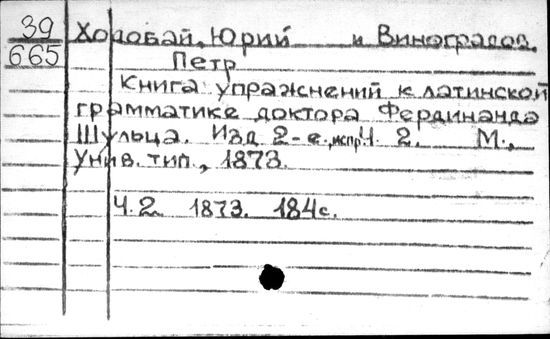 39 Ходобай, Юрий и Виноградов,
665 Петр
Книга упражнений к латинской
грамматике доктора Фердинанда
Шульца. Изд 2-е, испр. Ч. 2. М.,
Унив. тип., 1873.
Ч. 2 1873. 184 с.